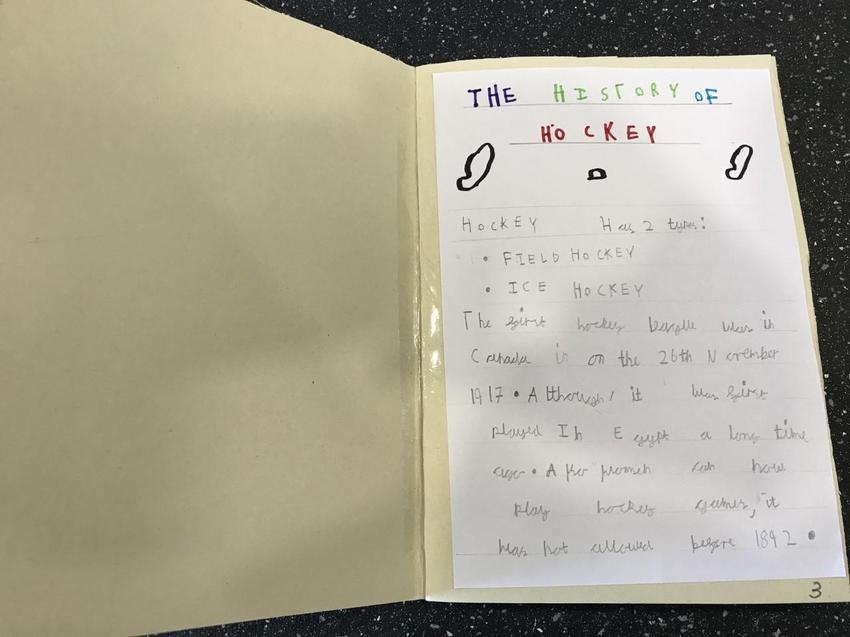 THE HISTORY OF
HOCKEY
HOCKEY Has 2 types:
• FIELD HOCKEY
• ICE HOCKEY
The first hockey league was in
Canada in on the 26th November
1917. Although, it was first
played In Egypt a long time
ago. women can now
play hockey games, it
was not allowed before 1892.
3